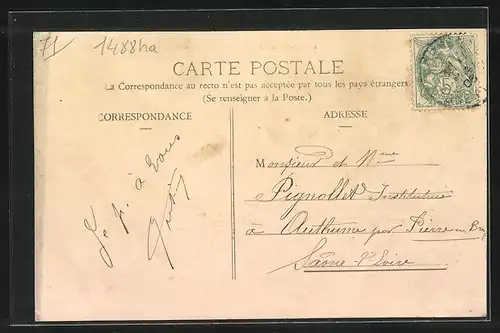 71
1488ha
CARTE POSTALE
La Correspondance au recto n'est pas acceptée par tous les pays étrangers
(Se renseigner à la Poste.)
CORRESPONDANCE
ADRESSE
à vous
Monsieur et Mme
Pignollet
à Authume par Pierre en
Saône & Loire